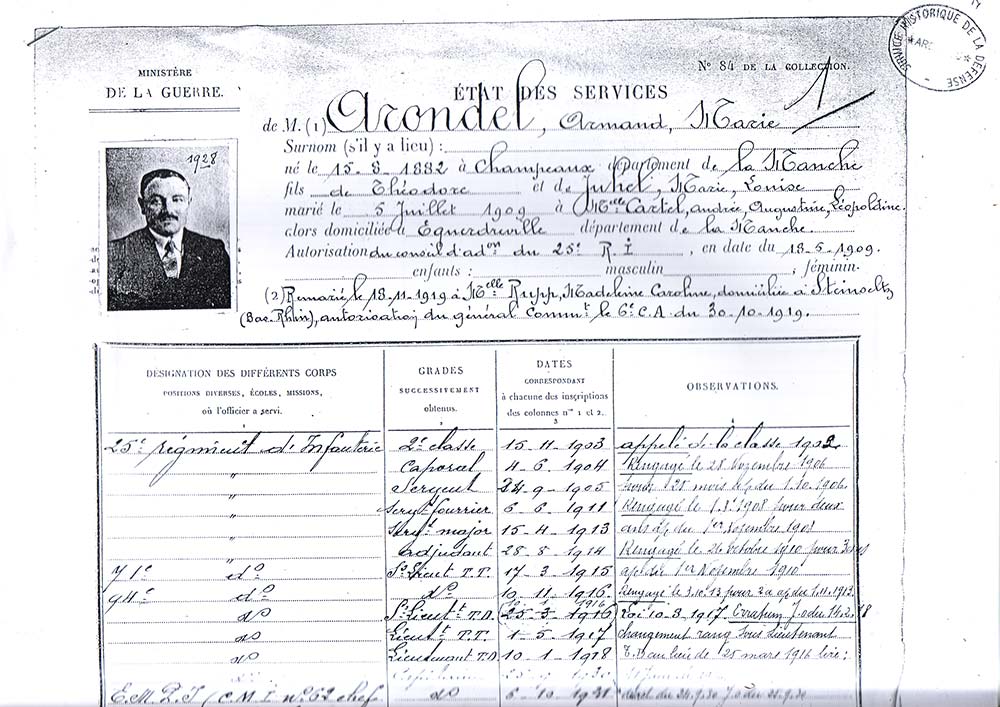 SERVICE HISTORIQUE DE LA DÉFENSE
MINISTÈRE
DE LA GUERRE.
N° 84 DE LA COLLECTION.
1
ÉTAT DES SERVICES
de M. (1) Arondel, Armand, Marie
1928
Surnom (s'il y a lieu) :
né le 15-8-1882 à Champeaux département de la Manche
fils de Théodore et de Juhel, Marie, Louise
marié le 5 Juillet 1909 à Melle Cartel, Andrée, Augustine, Léopoldine.
alors domiciliée à Equerdreville département de la Manche.
Autorisation du conseil d'adon du 25e R.I, en date du 18-5-1909.
enfants : masculin ; féminin.
(2) Remarié le 18-11-1919 à Melle Rupp, Madeleine Caroline, domiciliée à Steinseltz
(Bas-Rhin), autorisation du général Commt le 6e C.A du 30-10-1919.
DÉSIGNATION DES DIFFÉRENTS CORPS
POSITIONS DIVERSES, ÉCOLES, MISSIONS,
où l'officier a servi.
1
GRADES
SUCCESSIVEMENT
obtenus.
2
DATES
CORRESPONDANT
à chacune des inscriptions
des colonnes nos 1 et 2.
3
OBSERVATIONS.
25e régiment d'Infanterie 2e classe 15-11-1903 appelé de la classe 1902
" Caporal 4-6-1904 Rengagé le 28 Novembre 1906
" Sergent 24-9-1905 pour 25 mois
" Sergt fourrier 6-6-1911 Rengagé le 1908 pour deux
" Sergt major 15-4-1913 ans du 1er Novembre 1908
" adjudant 28-8-1914 Rengagé le 26 Octobre 1910 pour 3 ans
71e do Ss Lieut T.T. 17-3-1915 1er Novembre 1910
94e do do 10-11-1916. Rengagé
do Ss Lieutt T.D. 25-3-1916 Loi 10-8-1917 Erratum J.O du 14-2-18
do Lieutt T.T. 1-5-1917 changement rang Sous Lieutenant
do Lieutenant T.D 10-1-1918 T.D au lieu de 25 mars 1916 lire :
E.M.R.I (C.M.I n° 62 chef do 6-10-1931 décret du 24.9.30 J.O du 25.9.30